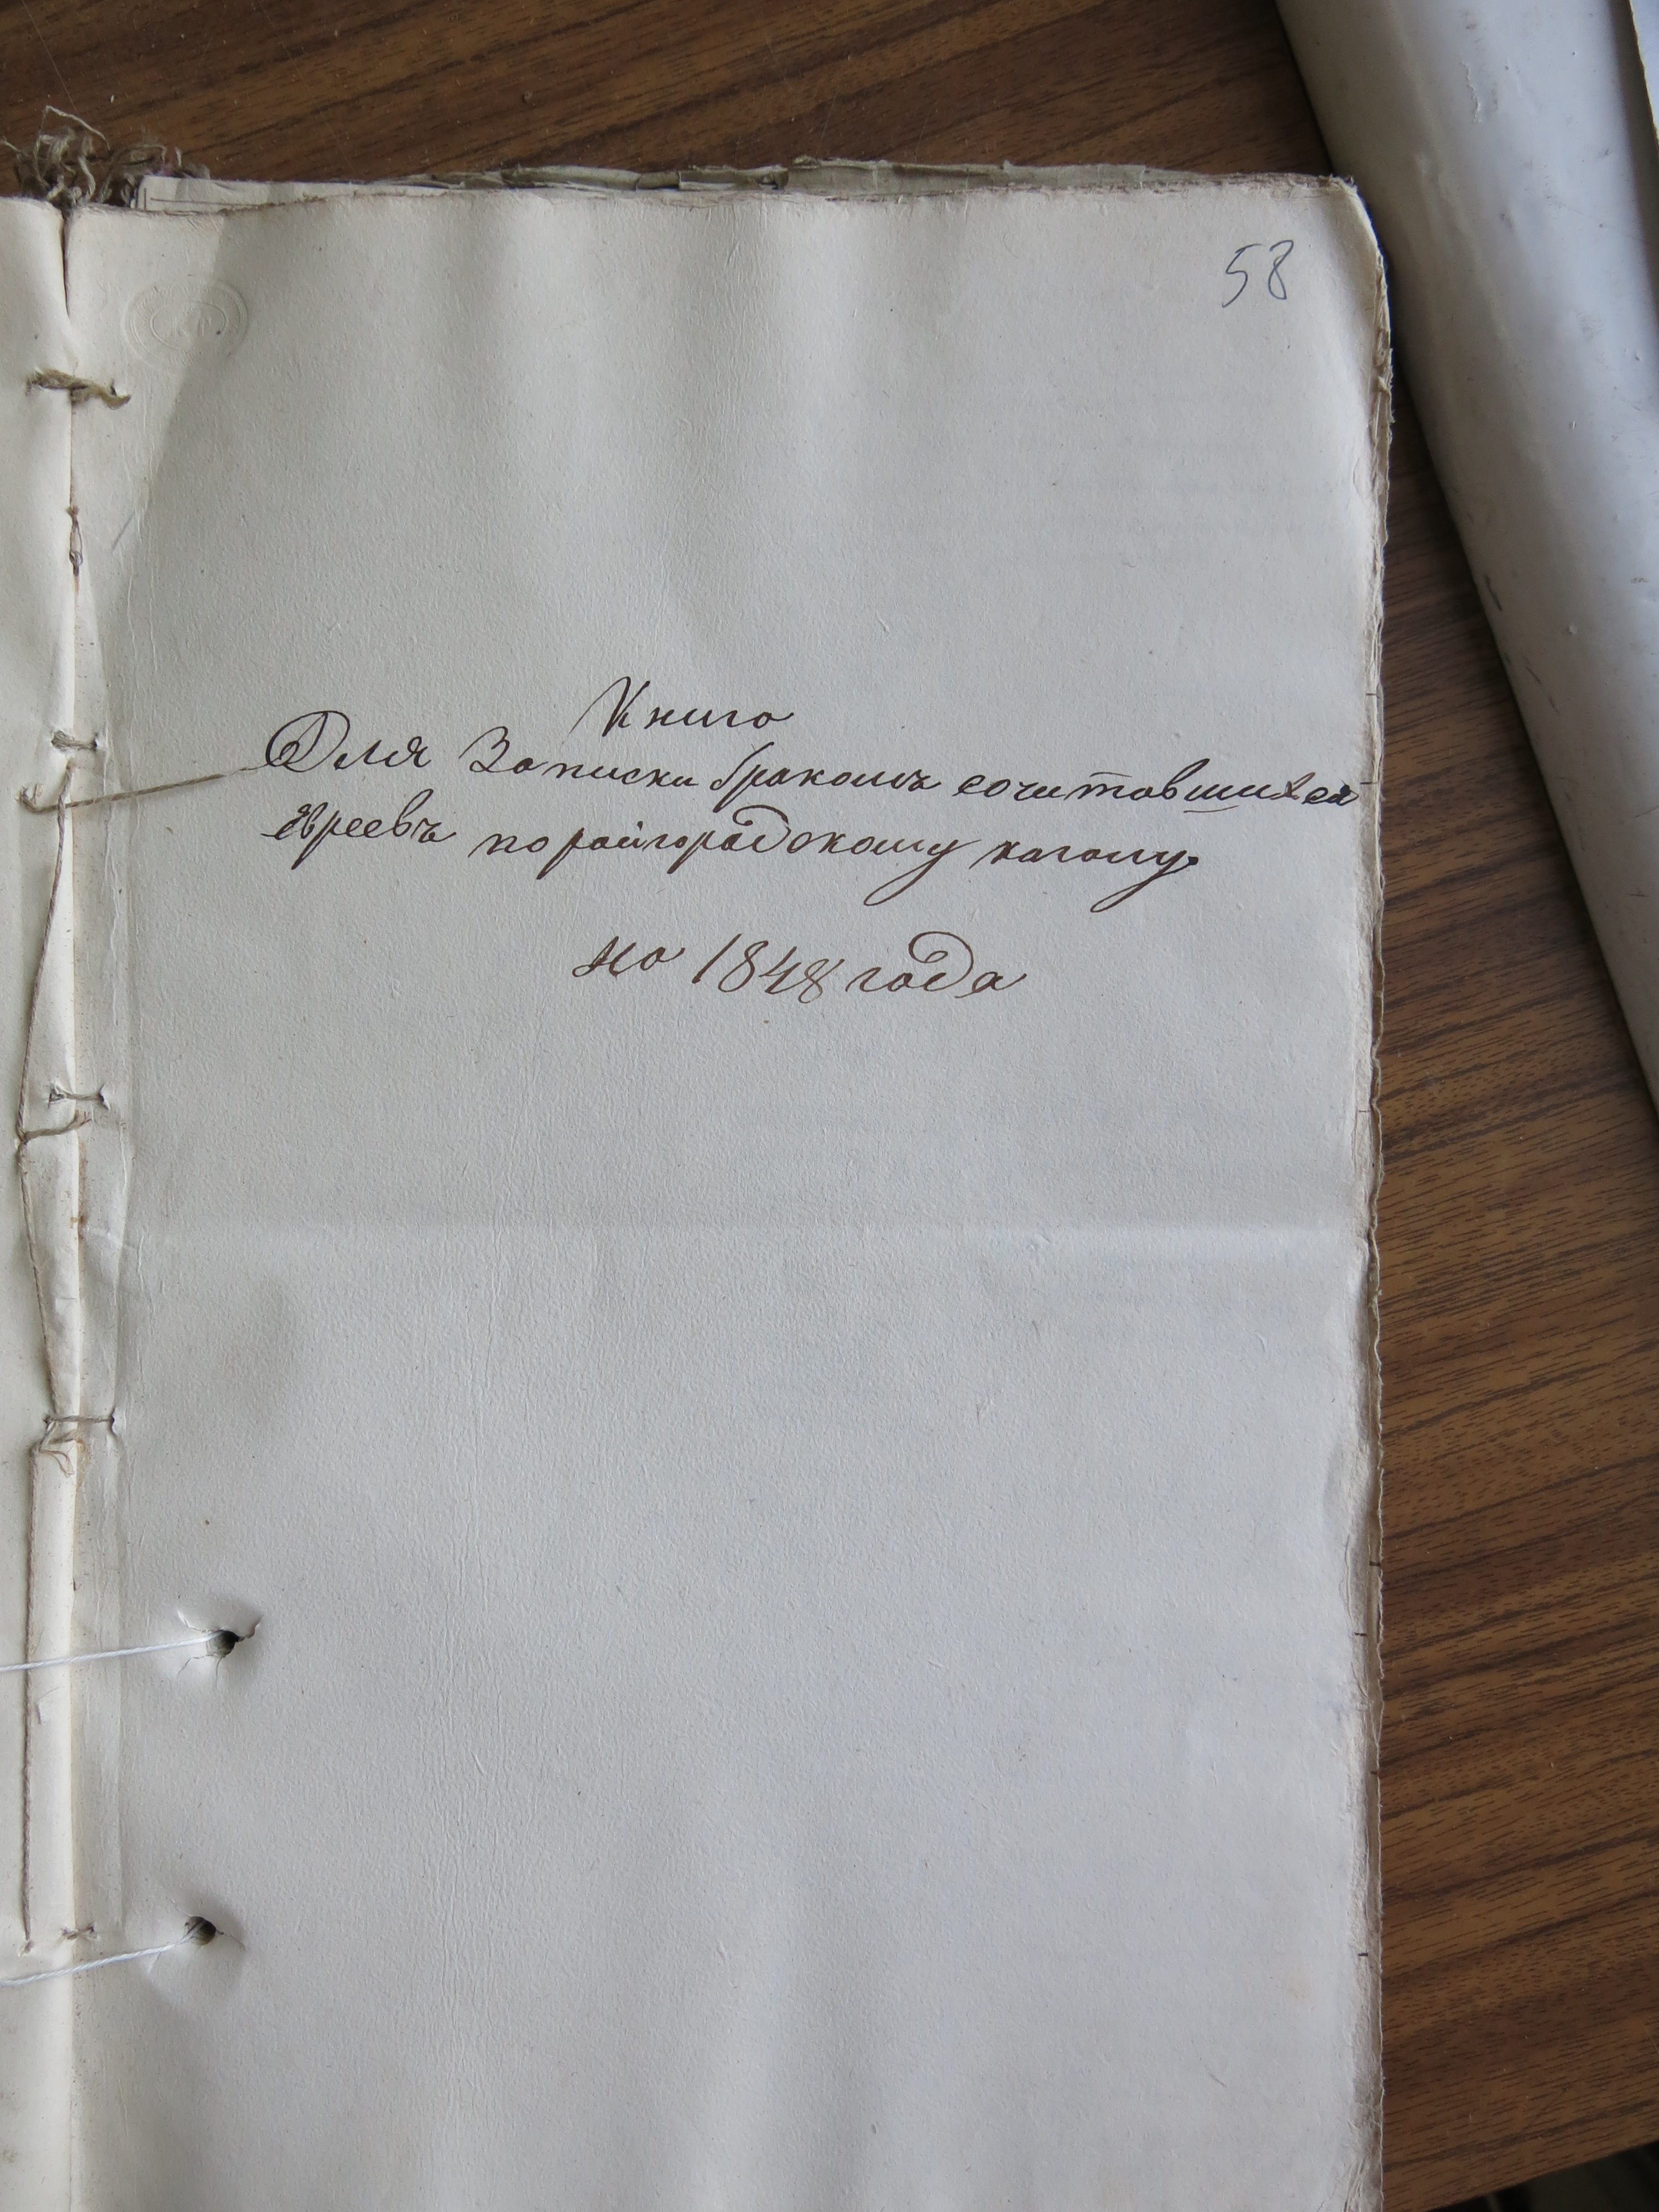 58
Книга
Для Записки бракомъ сочитавшихся
Евреевъ по райгородскому кагалу
на 1848 года